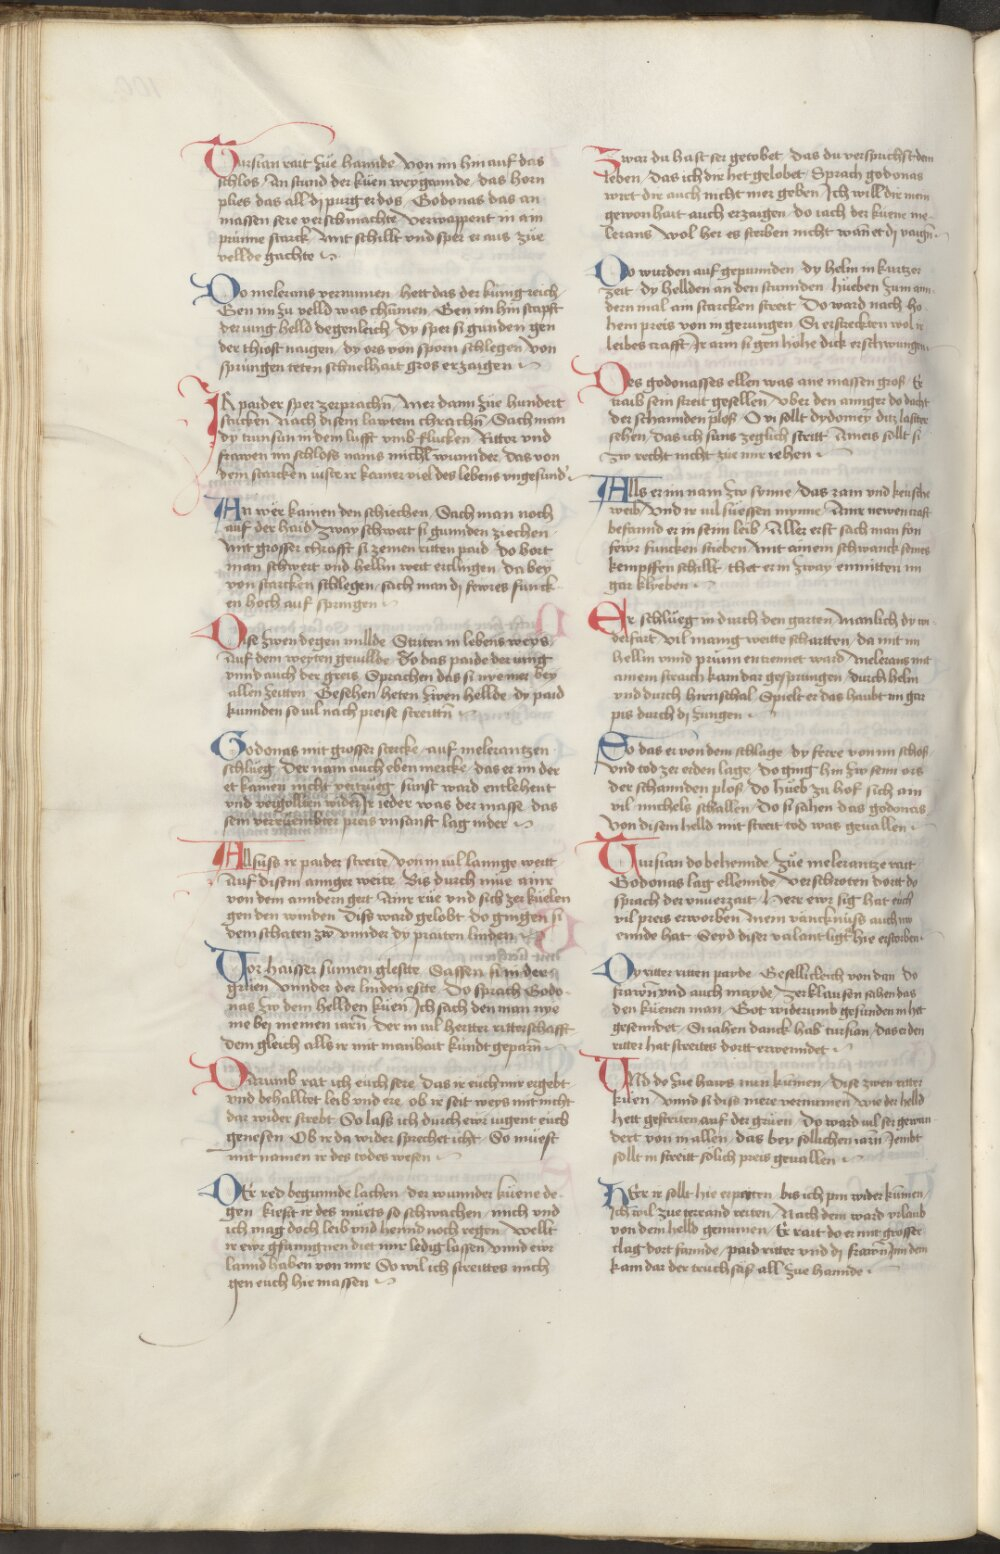 Tursian rait zue hannde Von im hin auf das
schlos An stund der küen weygannde das horn
plies das all dj purg erdos Godonas das an
massen sere verschmachte Verwappent in ain
prünne starck Mit schillt vnd sper er aus züe
vellde gachte
Do melerans vernumen hett das der küng reich
Gen im zu velld was chämen Gen im hin stapft
der iung helld degenleich Dy sper si gunden gen
der thiost naigen dy ors von sporn schlegen von
sprüngen teten schnelhait gros erzaigen
IR paider sper zerprachñ Mer dann zue hundert
stucken Nach disem lawtem chrachñ Sach man
dy trunsun in dem lufft vmb flucken Ritter vnd
frawen im schloss nams michl wunnder das von
dem starcken iuste ir kainer viel des lebens vngesund
An wer kamen den schiechen Sach man noch
auf der haid zway schwert si gunnden ziechen
Mit grosser chrafft si zemen ritten paid do hort
man schwert vnd hellm weit erclingen da bey
von starcken schlegen sach man dj fewres funck
en hoch auf springen
Dise zwen degen millde Striten in lebens weys
Auf dem weyten geuillde Do das paide der iung
vnnd auch der greis Sprachen das si nye mer bey
allen zeitten Gesehen heten zwen hellde dy paid
kunnden so uil nach preise streittn
Godonas mit grosser stercke auf melerantzen
schlueg Der nam auch eben mercke das er im der
et kainen nicht vertrueg sunst ward entlehent
vnd vergollten wider Ir ieder was der masse das
sein vereuembter preis vnsanft lag nider
Allsuss ir paider streite von in uil lannge weritt
Auf disem annger weite Bis durch mue ainr
von dem anndern gert Ainr rüe vnd sich zer küelen
gen den winden Dise ward gelobt do gingen si
dem schaten zw vnnder dy praiten linden
Vor haisser sunnen gleste Sassen si in der
grüen vnnder der linden esste Do sprach Godo
nas zw dem hellden küen Ich sach den man nye
me bei meinen iarñ der in uil hertter ritterschafft
dem gleich alls ir mit manhait kündt geparñ
Darumb rat ich euch sere das ir euch mir ergebt
vnd behalltet leib vnd ere ob ir seit weys mit nicht
dar wider strebt So lass ich durch ewr iugent euch
genesen Ob ir da wider sprechet icht So müest
mit namen ir des todes wesen
Der red begunnde lachen der wunnder küene de
gen kiest ir des müets so schwachen mich vnd
ich mag doch leib vnd hennd noch regen Wellt
ir ewr gfanngnen diet mir ledig lassen vnnd ewr
lannd haben von mir So wil ich streittes mich
gen euch hie massen
Zwar du hast ser getobet das du versprichst dem
leben das ich dir het gelobet Sprach godonas
wirt dir auch nicht mer geben Ich will dir mein
gewonhait auch erzaigen do iach der küene me
lerans wol her es sterben nicht wan et dj vaigñ
Do wurden auf gepunnden dy helm in kurtzer
zeit dy hellden an den stunnden hueben zum ann
dern mal am starcken streit Do ward nach ho
hem preis von in gerungen Si erstreckten wol ir
leibes crafft Ir arm si gen höhe dick erschwungen
Des godonasses ellen was ane massen gros Er
traib sein streit gesellen Vber den annger do dacht
der schannden plos O vi sollt dydomey ditz laster
sehen das ich suns zeglich stritt Ameis sollt si
zw recht nicht züe mir iehen
Alls er im nam zw synne das zam vnd keusche
weib Vnd ir uil süessen mynne Ainr newen craft
befannd er in seim leib Aller erst sach man fon
fewr funcken stieben mit ainem schwanck seines
kempffen schillt thet er in zway enmitten im
gar klyeben
Er schlueg in durch den garten Manlich dy wi
derfart vil manig weitte scharten da mit im
hellm vnnd prünn entrennet ward Melerans mit
ainem straich kam dar gesprungen durch helm
vnd durch hirnschal Spielt er das haubt im gar
pis durch dj zungen
So das er von dem schlage dy ferre von im schoss
vnd tod zer erden lage do ging hin zw seim ors
der schannden plos do hueb zu hof sich ain
vil michels schallen do si sahen das godonas
von disem helld mit streit tod was geuallen
Tursian do behennde Zue melerantze rait
Godonas lag ellennde verschroten dortt do
sprach der vnuerzait Herr ewr sig hat euch
vil preis erworben Mein vanncknüss auch nw
ennde hat Seyd diser valant ligt hie erstorben
Dy ritter ritten payde Gesellicleich von dan do
frawñ vnd auch mayde Zer klausen sahen das
den küenen man Got widerumb gesunden in het
gesenndet Si iahen danck hab tursian das er den
ritter hat streites dortt erwenndet
Und do zue haws nun kumen Dise zwen ritter
küen vnnd si dise mere vernumen wie der helld
hett gestriten auf der grüen Do ward uil ser gewun
dert von in allen das bey sollichen iarñ Iembt
sollt in streitt solich preis geuallen
HErr ir sollt hie erpaiten bis ich pin wider kumen
Ich wil zue terrand reiten Nach dem ward vrlaub
von dem helld genumen Er rait do er mit grosser
clag dort fannde paid ritter vnd dj frawñ Inn dem
kam dar der truchsäs all zue hannde